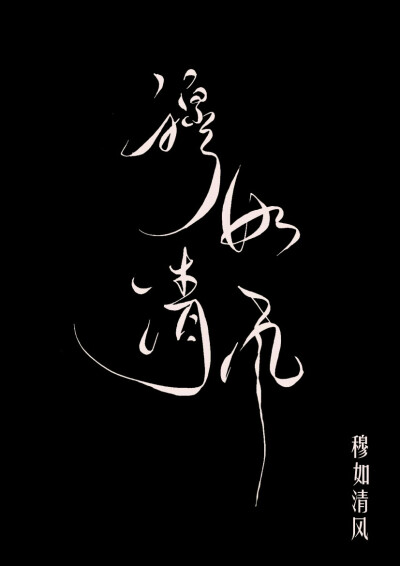 穆如
清风
穆如清风